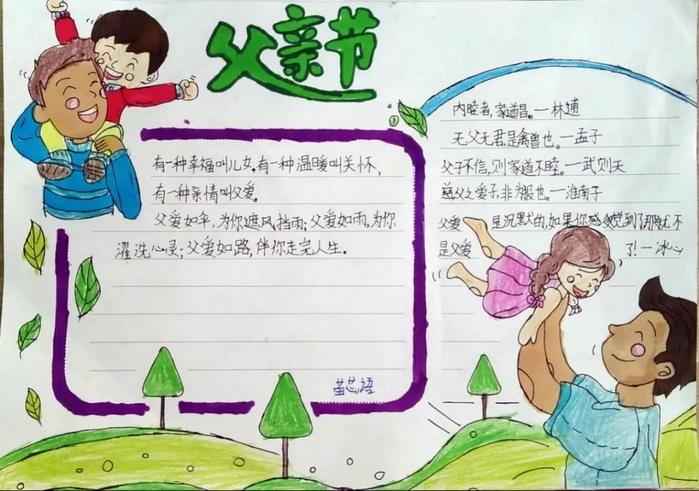 父亲节
有一种幸福叫儿女，有一种温暖叫关怀，
有一种亲情叫父爱。
父爱如伞，为你遮风挡雨；父爱如雨，为你
濯洗心灵；父爱如路，伴你走完人生。
苗芯语
内睦者，家道昌。—林逋
无父无君是禽兽也。—孟子
父子不信，则家道不睦。—武则天
慈父之爱子，非为报也。—淮南子
父爱 是沉默的，如果你感觉到了那就不
是父爱 了！—冰心